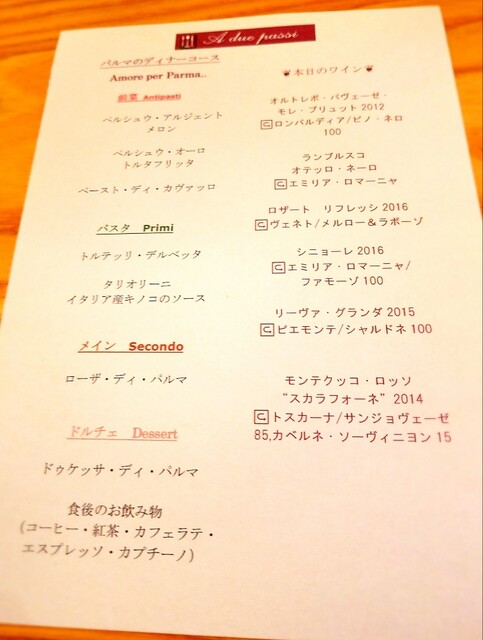 A due passi
パルマのディナーコース
Amore per Parma..
前菜 Antipasti
ペルシュウ・アルジェント
メロン
ペルシュウ・オーロ
トルタフリッタ
ペースト・ディ・カヴァッロ
パスタ Primi
トルテッリ・デルベッタ
タリオリーニ
イタリア産キノコのソース
メイン Secondo
ローザ・ディ・パルマ
ドルチェ Dessert
ドゥケッサ・ディ・パルマ
食後のお飲み物
(コーヒー・紅茶・カフェラテ・
エスプレッソ・カプチーノ)
❦本日のワイン❦
オルトレポ・パヴェーゼ・
モレ・ブリュット 2012
ロンバルディア/ピノ・ネロ
100
ランブルスコ
オテッロ・ネーロ
エミリア・ロマーニャ
ロザート リフレッシ 2016
ヴェネト/メルロー＆ラボーゾ
シニョーレ 2016
エミリア・ロマーニャ/
ファモーゾ 100
リーヴァ・グランダ 2015
ピエモンテ/シャルドネ 100
モンテクッコ・ロッソ
“スカラフォーネ” 2014
トスカーナ/サンジョヴェーゼ
85,カベルネ・ソーヴィニヨン 15